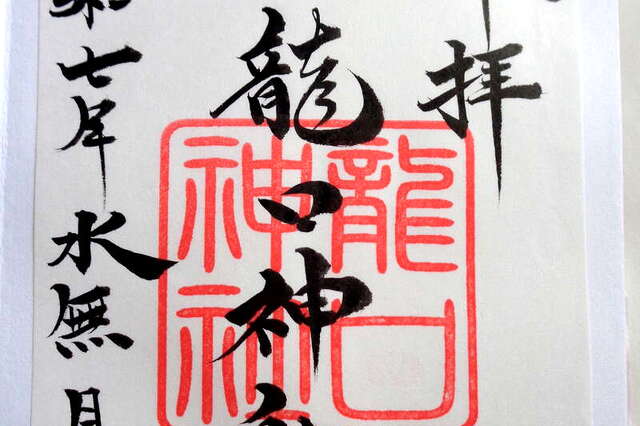 拝
龍口神社
龍口
神社
第七年
水無月